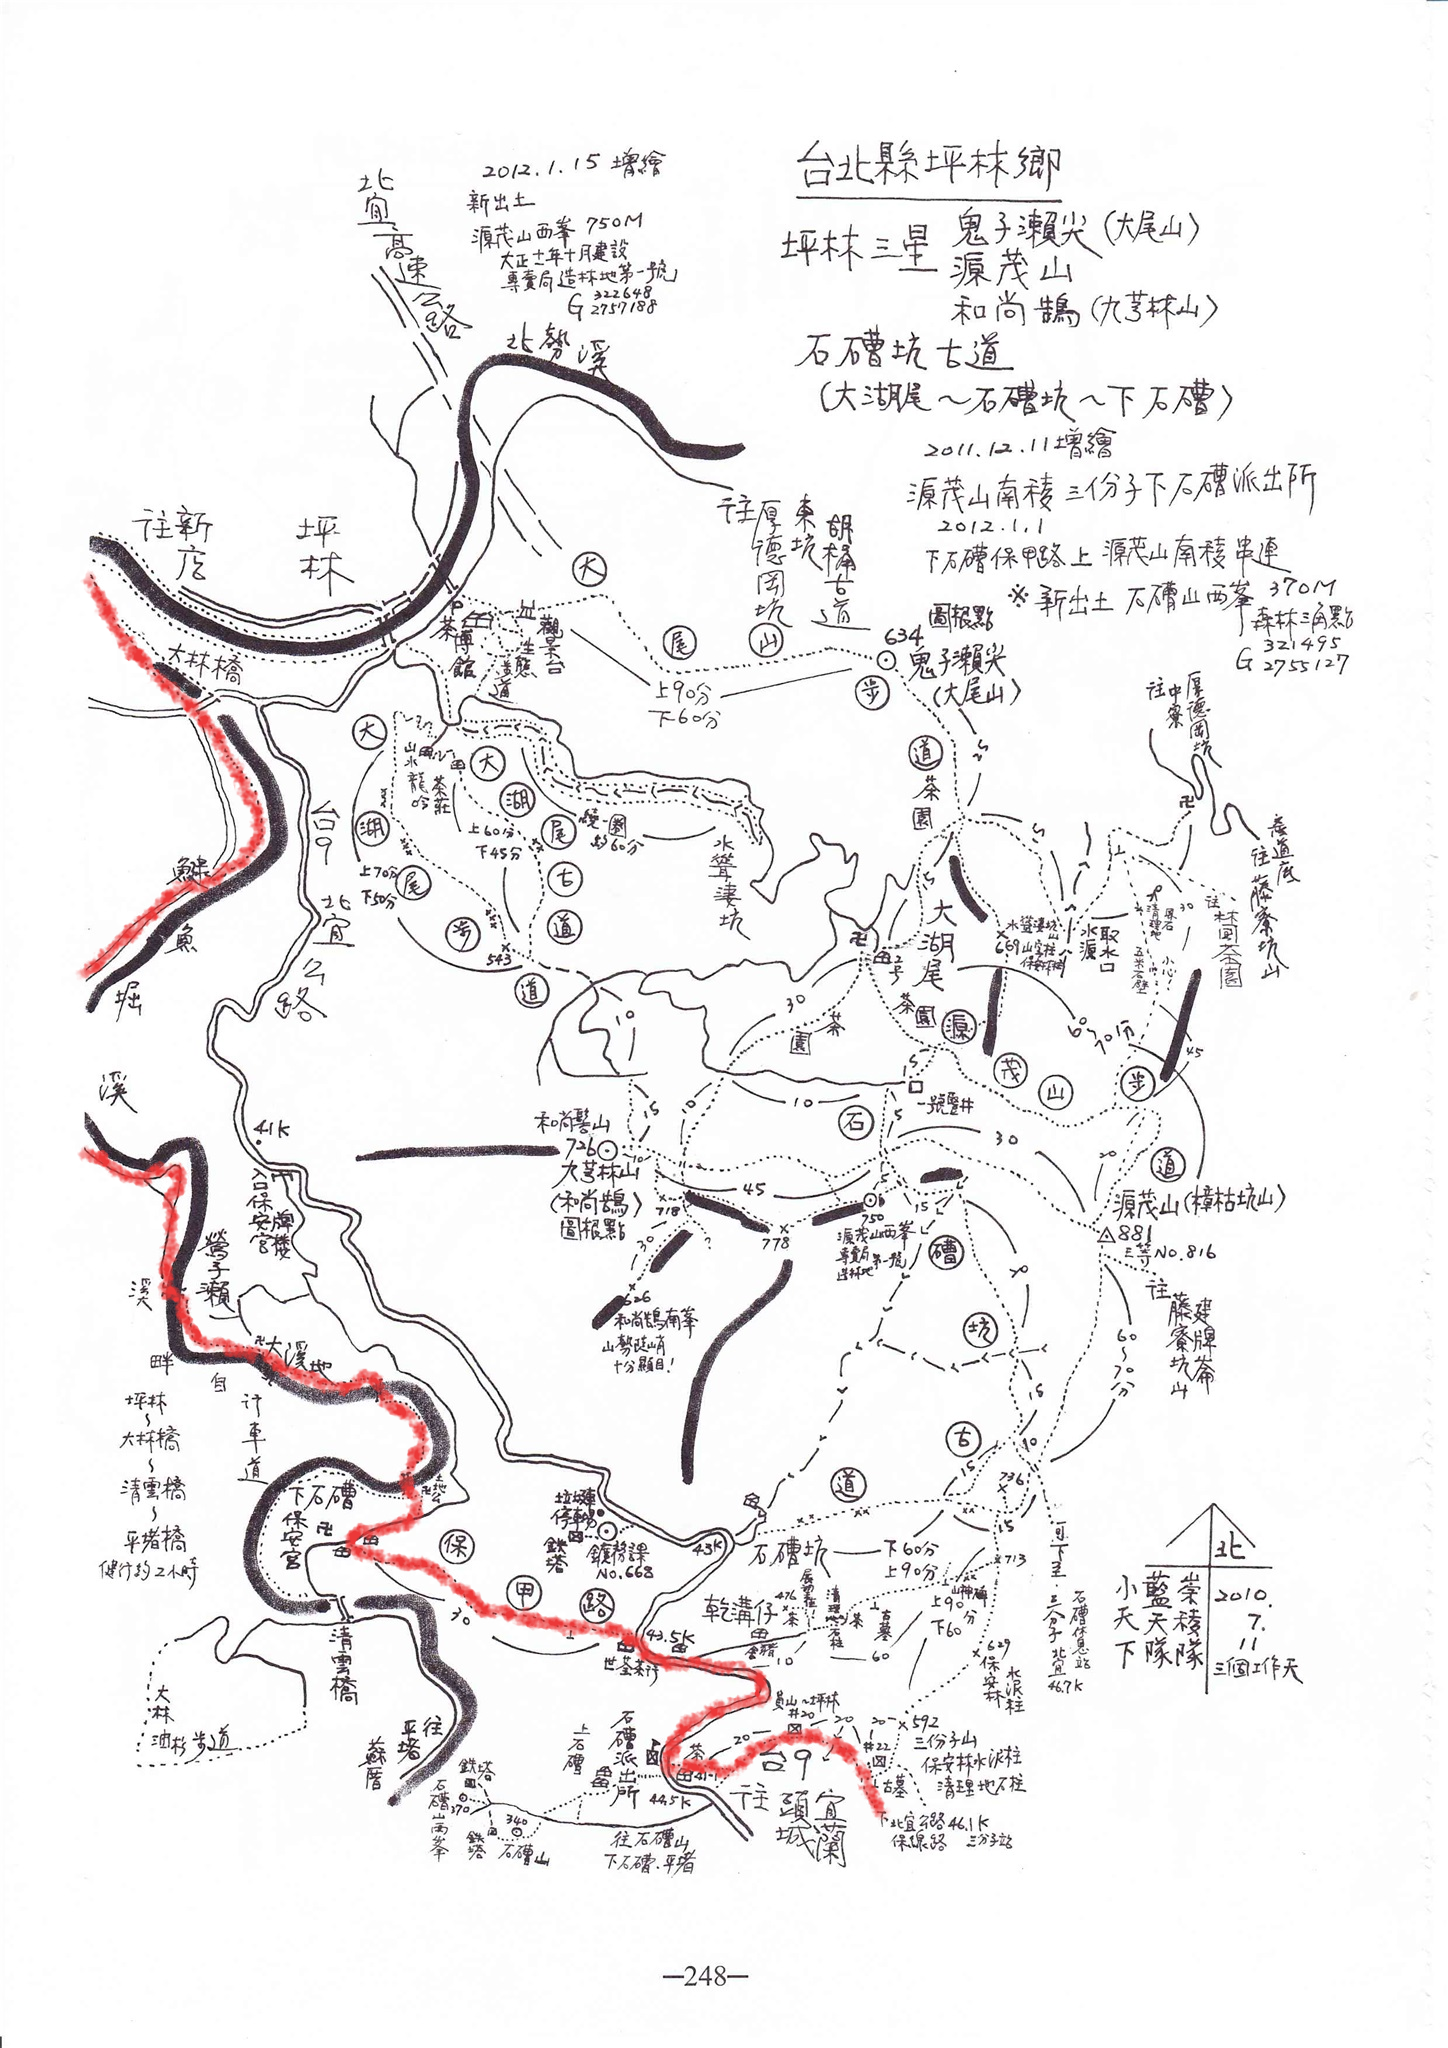 台北縣坪林鄉
坪林三星 鬼子瀨尖(大尾山)
源茂山
和尚鵠(九芎林山)
石𥕢坑古道
(大湖尾~石𥕢坑~下石𥕢)
2011.12.11增繪
源茂山南稜三份子下石𥕢派出所
2012.1.1
下石𥕢保甲路上源茂山南稜串連
※新出土 石𥕢山西峯 370M
森林三角點
G 321495
2755127
2012.1.15 增繪
新出土
源茂山西峯 750M
大正十一年十月建設
專賣局造林地第一號
G 322648
2757188
北宜高速公路
北勢溪
往新店
坪林
大林橋
茶博館
觀景台
生態步道
往厚德岡坑
東坑
胡桶古道
大尾山步道
上90分
下60分
圖根點
634
鬼子瀨尖
(大尾山)
茶園
往中寮
厚德岡坑
往藤寮坑山
往茶園
台9
北宜公路
鱙魚堀溪
大湖尾步道
上70分
下50分
山水龍吟
茶莊
大湖尾古道
上60分
下45分
543
繞一圈
約60分
水聳淒坑
大湖尾
2号
茶園
669
水源
取水口
小心!
30
45
60~70分
源茂山步道
一號豎井
10
15
30
和尚髻山
726
九芎林山
(和尚鵠)
圖根點
718
778
750
源茂山西峯
專賣局
造林地
第一號
626
和尚鵠南峯
山勢陡峭
十分顯目!
源茂山(樟枯坑山)
881
三等NO.816
往藤寮坑山
建牌崙
60~70分
石𥕢坑古道
41K
入口保安宮牌樓
鶯子瀨
大溪地
溪畔自行車道
坪林
~
大林橋
~
清雲橋
~
平堵橋
健行約2小時
下石𥕢
保安宮
土地公
保甲路
30
清雲橋
往平堵
蘇厝
大林
油杉步道
垃圾車
停車場
鉄塔
鑛務課
NO.668
43K
石𥕢坑
下60分
上90分
736
713
上90分
下60
乾溝仔
476
古墓
629
保安林
水泥柱
可下至三份子北宜46.7K
石𥕢休息站
43.5K
世荃茶行
員山~坪林
#20
#22
592
三份子山
保安林水泥柱
清理地石柱
古墓
下北宜公路46.1K
保線路 三分子站
石𥕢派出所
44.5K
上石𥕢
台9
往頭城
宜蘭
鉄塔
370
石𥕢山西峯
鉄塔
340
石𥕢山
往石𥕢山
下石𥕢.平堵
北
小天下
藍天隊
崇稜隊
2010.
7.
11
三個工作天
—248—